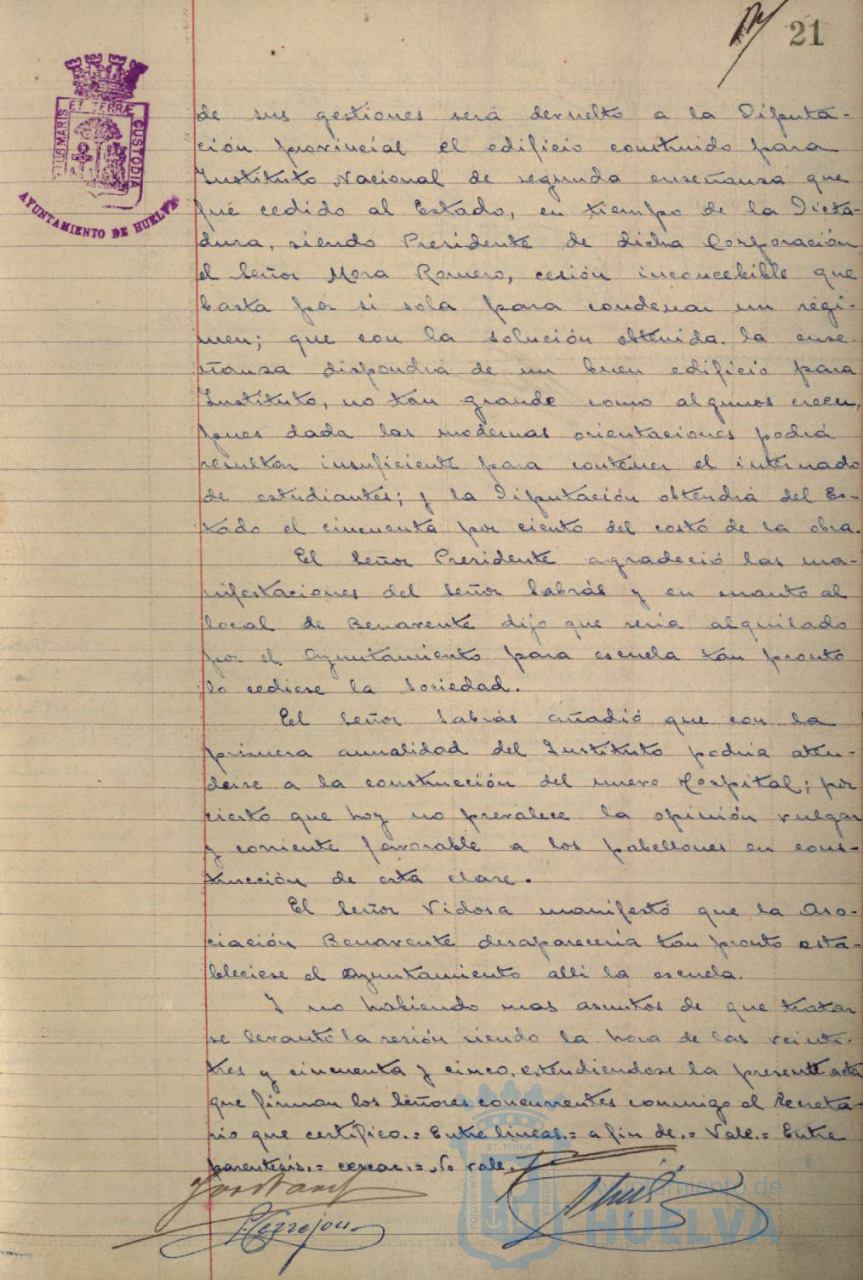 21
PORTUS MARIS
ET TERRÆ
CUSTODIA
AYUNTAMIENTO DE HUELVA
de sus gestiones será devuelto a la Diputa-
ción provincial el edificio construido para
Instituto Nacional de segunda enseñanza que
fué cedido al Estado, en tiempo de la Dicta-
dura, siendo Presidente de dicha Corporación
el Señor Mora Romero, cesión inconcebible que
basta por si sola para condenar un régi-
men; que con la solución obtenida la ense-
ñanza dispondrá de un buen edificio para
Instituto, no tan grande como algunos creen,
pues dada las modernas orientaciones podrá
resultar insuficiente para contener el internado
de estudiantes; y la Diputación obtendrá del Es-
tado el cincuenta por ciento del costo de la obra.
El Señor Presidente agradeció las ma-
nifestaciones del Señor Sabrás y en cuanto al
local de Benavente dijo que seria alquilado
por el Ayuntamiento para escuela tan pronto
lo cediese la Sociedad.
El Señor Sabrás añadió que con la
primera anualidad del Instituto podria aten-
derse a la construcción del nuevo Hospital; por
cierto que hoy no prevalece la opinión vulgar
y corriente favorable a los pabellones en cons-
trucción de esta clase.
El Señor Vidosa manifestó que la Aso-
ciación Benavente desapareceria tan pronto esta-
bleciese el Ayuntamiento alli la escuela.
Y no habiendo mas asuntos de que tratar
se levantó la sesión siendo la hora de las veinte-
tres y cincuenta y cinco, extendiendose la presente acta
que firman los Señores concurrentes conmigo el Secreta-
rio que certifico.= Entre lineas.= a fin de.= Vale.= Entre
parentesis.= No vale.
Terrejon
Ayuntamiento de
HUELVA